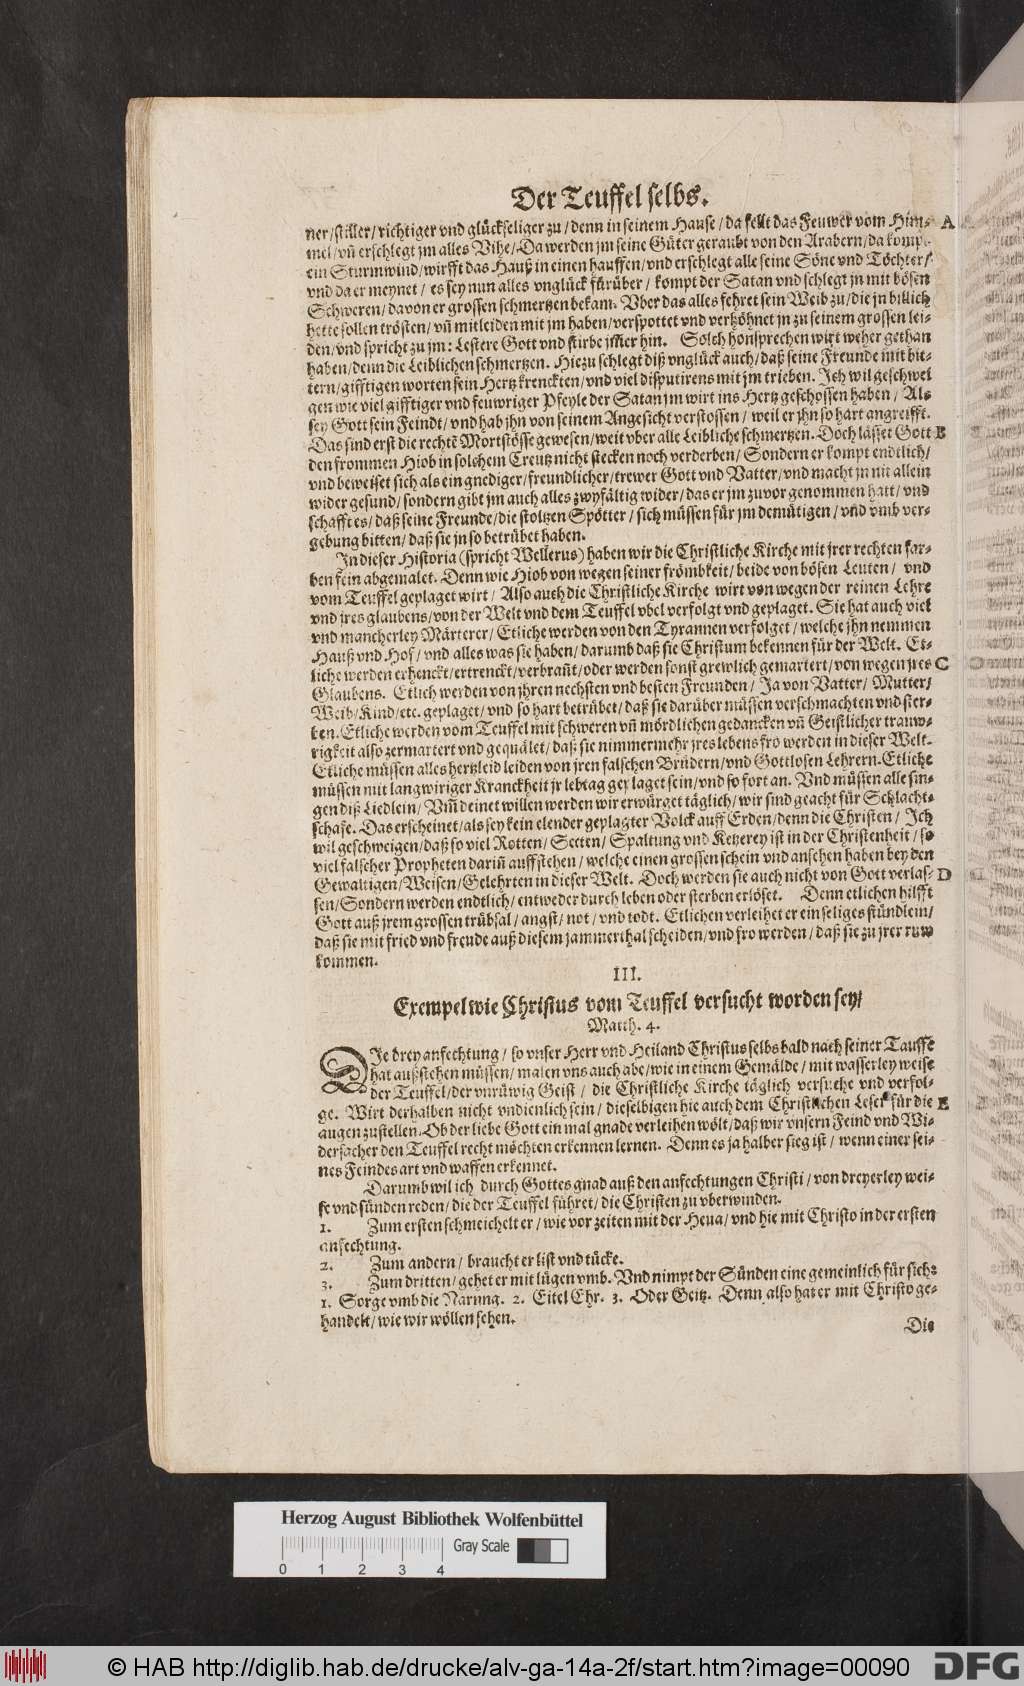 Der Teuffel selbs.
ner/stiller/richtiger vnd glückseliger zu/denn in seinem Hause/da fellt das Feuwer vom Him- A
mel/vñ erschlegt jm alles Vihe/Da werden jm seine Güter geraubt von den Arabern/da kompt
ein Sturmwind/wirfft das Hauß in einen hauffen/vnd erschlegt alle seine Söne vnd Töchter/
vnd da er meynet/es sey nun alles vnglück fürüber/kompt der Satan vnd schlegt jn mit bösen
Schweren/davon er grossen schmertzen bekam. Vber das alles fehret sein Weib zu/die jn billich
hette sollen trösten/vñ mitleiden mit jm haben/verspottet vnd verhöhnet jn zu seinem grossen lei-
den/vnd spricht zu jm: Lestere Gott vnd stirbe jmer hin. Solch honsprechen wirt weher gethan
haben/denn die Leiblichen schmertzen. Hiezu schlegt diß vnglück auch/daß seine Freunde mit bit-
tern/gifftigen worten sein Hertz krenckten/vnd viel disputirens mit jm trieben. Jch wil geschwei
gen wie viel gifftiger vnd feuwriger Pfeyle der Satan jm wirt ins Hertz geschossen haben/Als
sey Gott sein Feindt/vnd hab jhn von seinem Angesicht verstossen/weil er jhn so hart angreifft.
Das sind erst die rechtē Mortstösse gewesen/weit vber alle Leibliche schmertzen. Doch lässet Gott B
den frommen Hiob in solchem Creutz nicht stecken noch verderben/Sondern er kompt endtlich/
vnd beweiset sich als ein gnediger/freundlicher/trewer Gott vnd Vatter/vnd macht jn nit allein
wider gesund/sondern gibt jm auch alles zwyfältig wider/das er jm zuvor genommen hatt/vnd
schafft es/daß seine Freunde/die stoltzen Spötter/sich müssen für jm demütigen/vnd vmb ver-
gebung bitten/daß sie jn so betrübet haben.
Jn dieser Historia (spricht Wellerus) haben wir die Christliche Kirche mit jrer rechten far-
ben fein abgemalet. Denn wie Hiob von wegen seiner frömbkeit/beide von bösen Leuten/vnd
vom Teuffel geplaget wirt/Also auch die Christliche Kirche wirt von wegen der reinen Lehre
vnd jres glaubens/von der Welt vnd dem Teuffel vbel verfolgt vnd geplaget. Sie hat auch viel
vnd mancherley Märterer/Etliche werden von den Tyrannen verfolget/welche jhn nemmen
Hauß vnd Hof/vnd alles was sie haben/darumb daß sie Christum bekennen für der Welt. Et-
liche werden erhenckt/ertrenckt/verbrañt/oder werden sonst grewlich gemartert/von wegen jres C
Glaubens. Etlich werden von jhren nechsten vnd besten Freunden/Ja von Vatter/Mutter/
Weib/Kind/etc. geplaget/vnd so hart betrübet/daß sie darüber müssen verschmachten vnd ster-
ben. Etliche werden vom Teuffel mit schweren vñ mördlichen gedancken vñ Geistlicher trauw-
rigkeit also zermartert vnd gequälet/daß sie nimmermehr jres lebens fro werden in dieser Welt.
Etliche müssen alles hertzleid leiden von jren falschen Brüdern/vnd Gottlosen Lehrern. Etliche
müssen mit langwiriger Kranckheit jr lebtag geplaget sein/vnd so fort an. Vnd müssen alle sin-
gen diß Liedlein/Vm̃ deinet willen werden wir erwürget täglich/wir sind geacht für Schlacht-
schafe. Das erscheinet/als sey kein elender geplagter Volck auff Erden/denn die Christen/Jch
wil geschweigen/daß so viel Rotten/Secten/Spaltung vnd Ketzerey ist in der Christenheit/so
viel falscher Propheten dariñ auffstehen/welche einen grossen schein vnd ansehen haben bey den
Gewaltigen/Weisen/Gelehrten in dieser Welt. Doch werden sie auch nicht von Gott verlas- D
sen/Sondern werden endtlich/entweder durch leben oder sterben erlöset. Denn etlichen hilfft
Gott auß jrem grossen trübsal/angst/not/vnd todt. Etlichen verleihet er ein seliges stündlein/
daß sie mit fried vnd freude auß diesem jammerthal scheiden/vnd fro werden/daß sie zu jrer ruw
kommen.
III.
Exempel wie Christus vom Teuffel versucht worden sey/
Matth. 4.
DJe drey anfechtung/so vnser Herr vnd Heiland Christus selbs bald nach seiner Tauffe
hat außstehen müssen/malen vns auch abe/wie in einem Gemälde/mit wasserley weise
der Teuffel/der vnrüwig Geist/die Christliche Kirche täglich versuche vnd verfol-
ge. Wirt derhalben nicht vndienlich sein/dieselbigen hie auch dem Christlichen Leser für die E
augen zustellen. Ob der liebe Gott ein mal gnade verleihen wölt/daß wir vnsern Feind vnd Wi-
dersacher den Teuffel recht möchten erkennen lernen. Denn es ja halber sieg ist/wenn einer sei-
nes Feindes art vnd waffen erkennet.
Darumb wil ich durch Gottes gnad auß den anfechtungen Christi/von dreyerley wei-
se vnd sünden reden/die der Teuffel führet/die Christen zu vberwinden.
1. Zum ersten schmeichelt er/wie vor zeiten mit der Heua/vnd hie mit Christo in der ersten
anfechtung.
2. Zum andern/braucht er list vnd tücke.
3. Zum dritten/gehet er mit lügen vmb. Vnd nimpt der Sünden eine gemeinlich für sich:
1. Sorge vmb die Narung. 2. Eitel Ehr. 3. Oder Geitz. Denn also hat er mit Christo ge-
handelt/wie wir wöllen sehen.
Die
Herzog August Bibliothek Wolfenbüttel
Gray Scale
0 1 2 3 4
© HAB http://diglib.hab.de/drucke/alv-ga-14a-2f/start.htm?image=00090
DFG